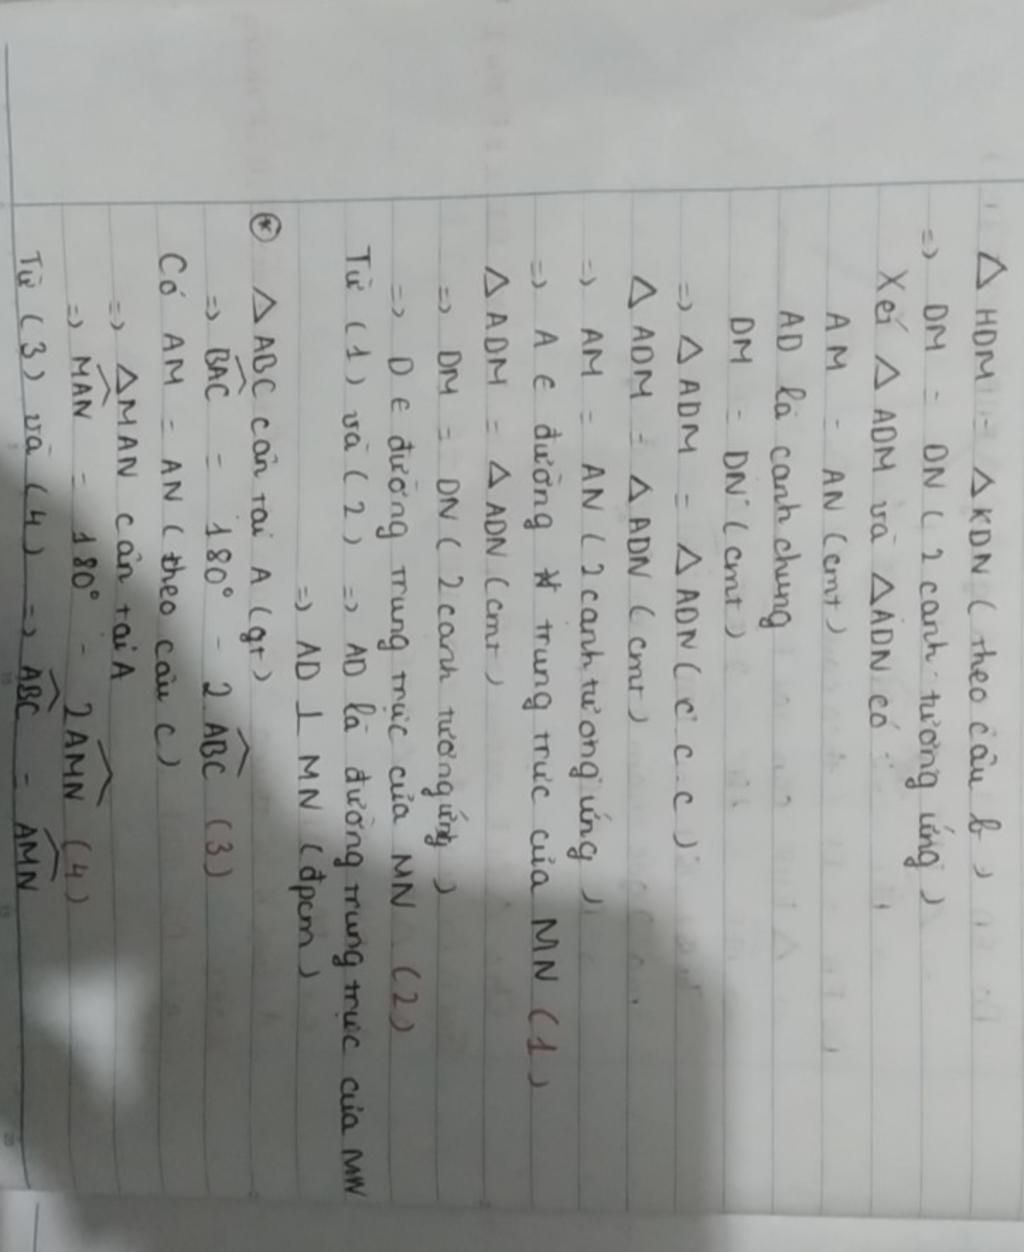 Δ HDM = Δ KDN ( theo câu b )
=> DM = DN ( 2 cạnh tương ứng )
Xét Δ ADM và Δ ADN có
AM = AN (cmt)
AD là cạnh chung
DM = DN (cmt)
=> Δ ADM = Δ ADN ( c c . c )
Δ ADM = Δ ADN ( cmt )
=> AM = AN ( 2 cạnh tương ứng )
=> A ∈ đường trung trực của MN (1)
Δ ADM = Δ ADN ( cmt )
=> DM = DN ( 2 cạnh tương ứng )
=> D ∈ đường trung trực của MN (2)
Từ (1) và (2) => AD là đường trung trực của MN
=> AD ⊥ MN (đpcm)
⊛ Δ ABC cân tại A (gt)
=> \widehat{BAC} = 180° - 2 \widehat{ABC} (3)
Có AM = AN ( theo câu c )
=> Δ MAN cân tại A
=> \widehat{MAN} = 180° - 2 \widehat{AMN} (4)
Từ (3) và (4) => \widehat{ABC} = \widehat{AMN}